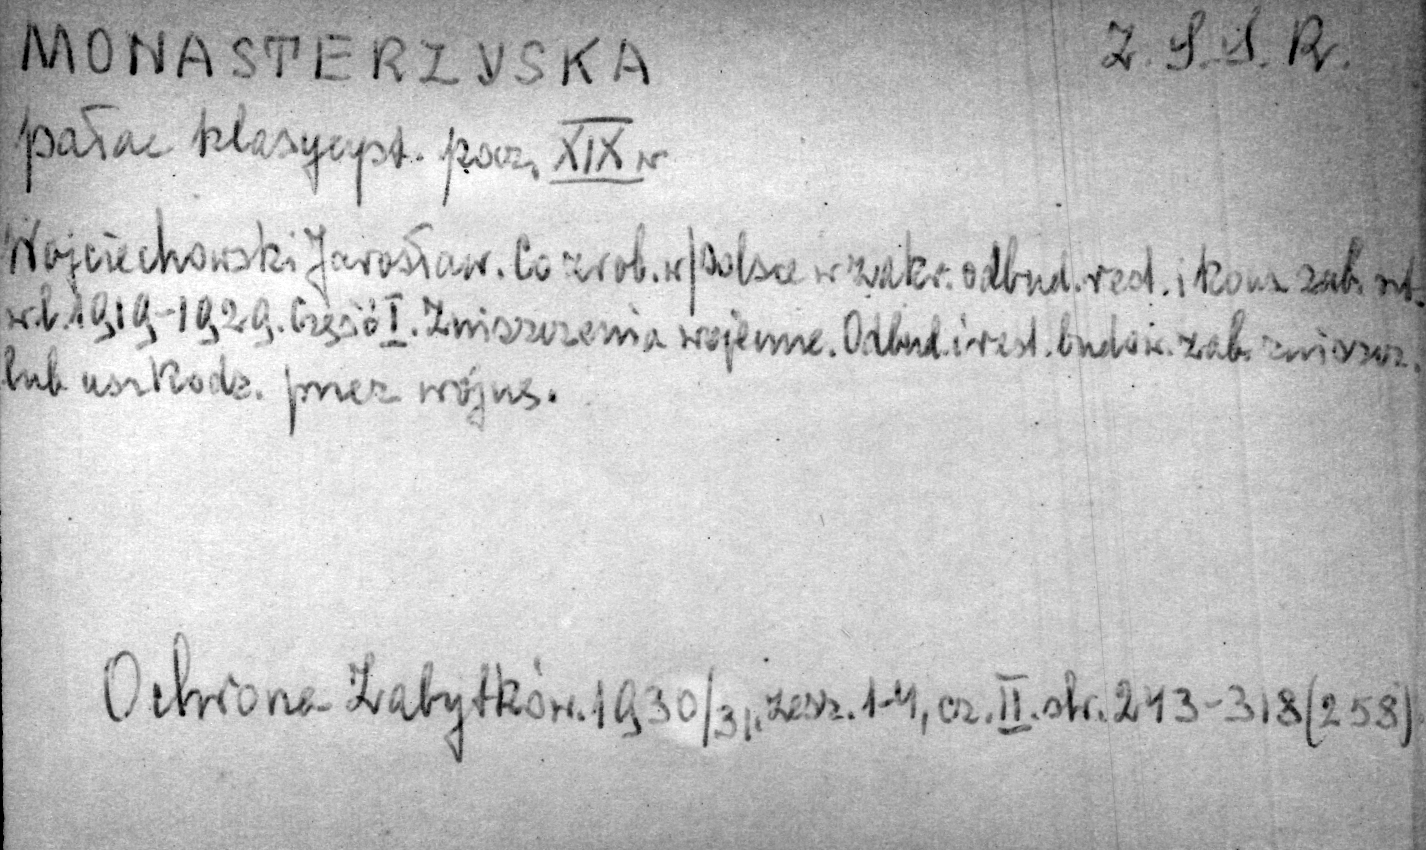 MONASTERZYSKA Z.S.S.R.
pałac klasycyst. pocz. XIX w
Wojciechowski Jarosław. Co zrob. w Polsce w zakr. odbud. rest. i kons. zab. szt.
w l. 1919-1929. Część I. Zniszczenia wojenne. Odbud. i rest. budow. zab. zniszcz.
lub uszkodz. przez wojnę.
Ochrona Zabytków. 1930/31. zesz. 1-4, cz. II. str. 243-318 (258)